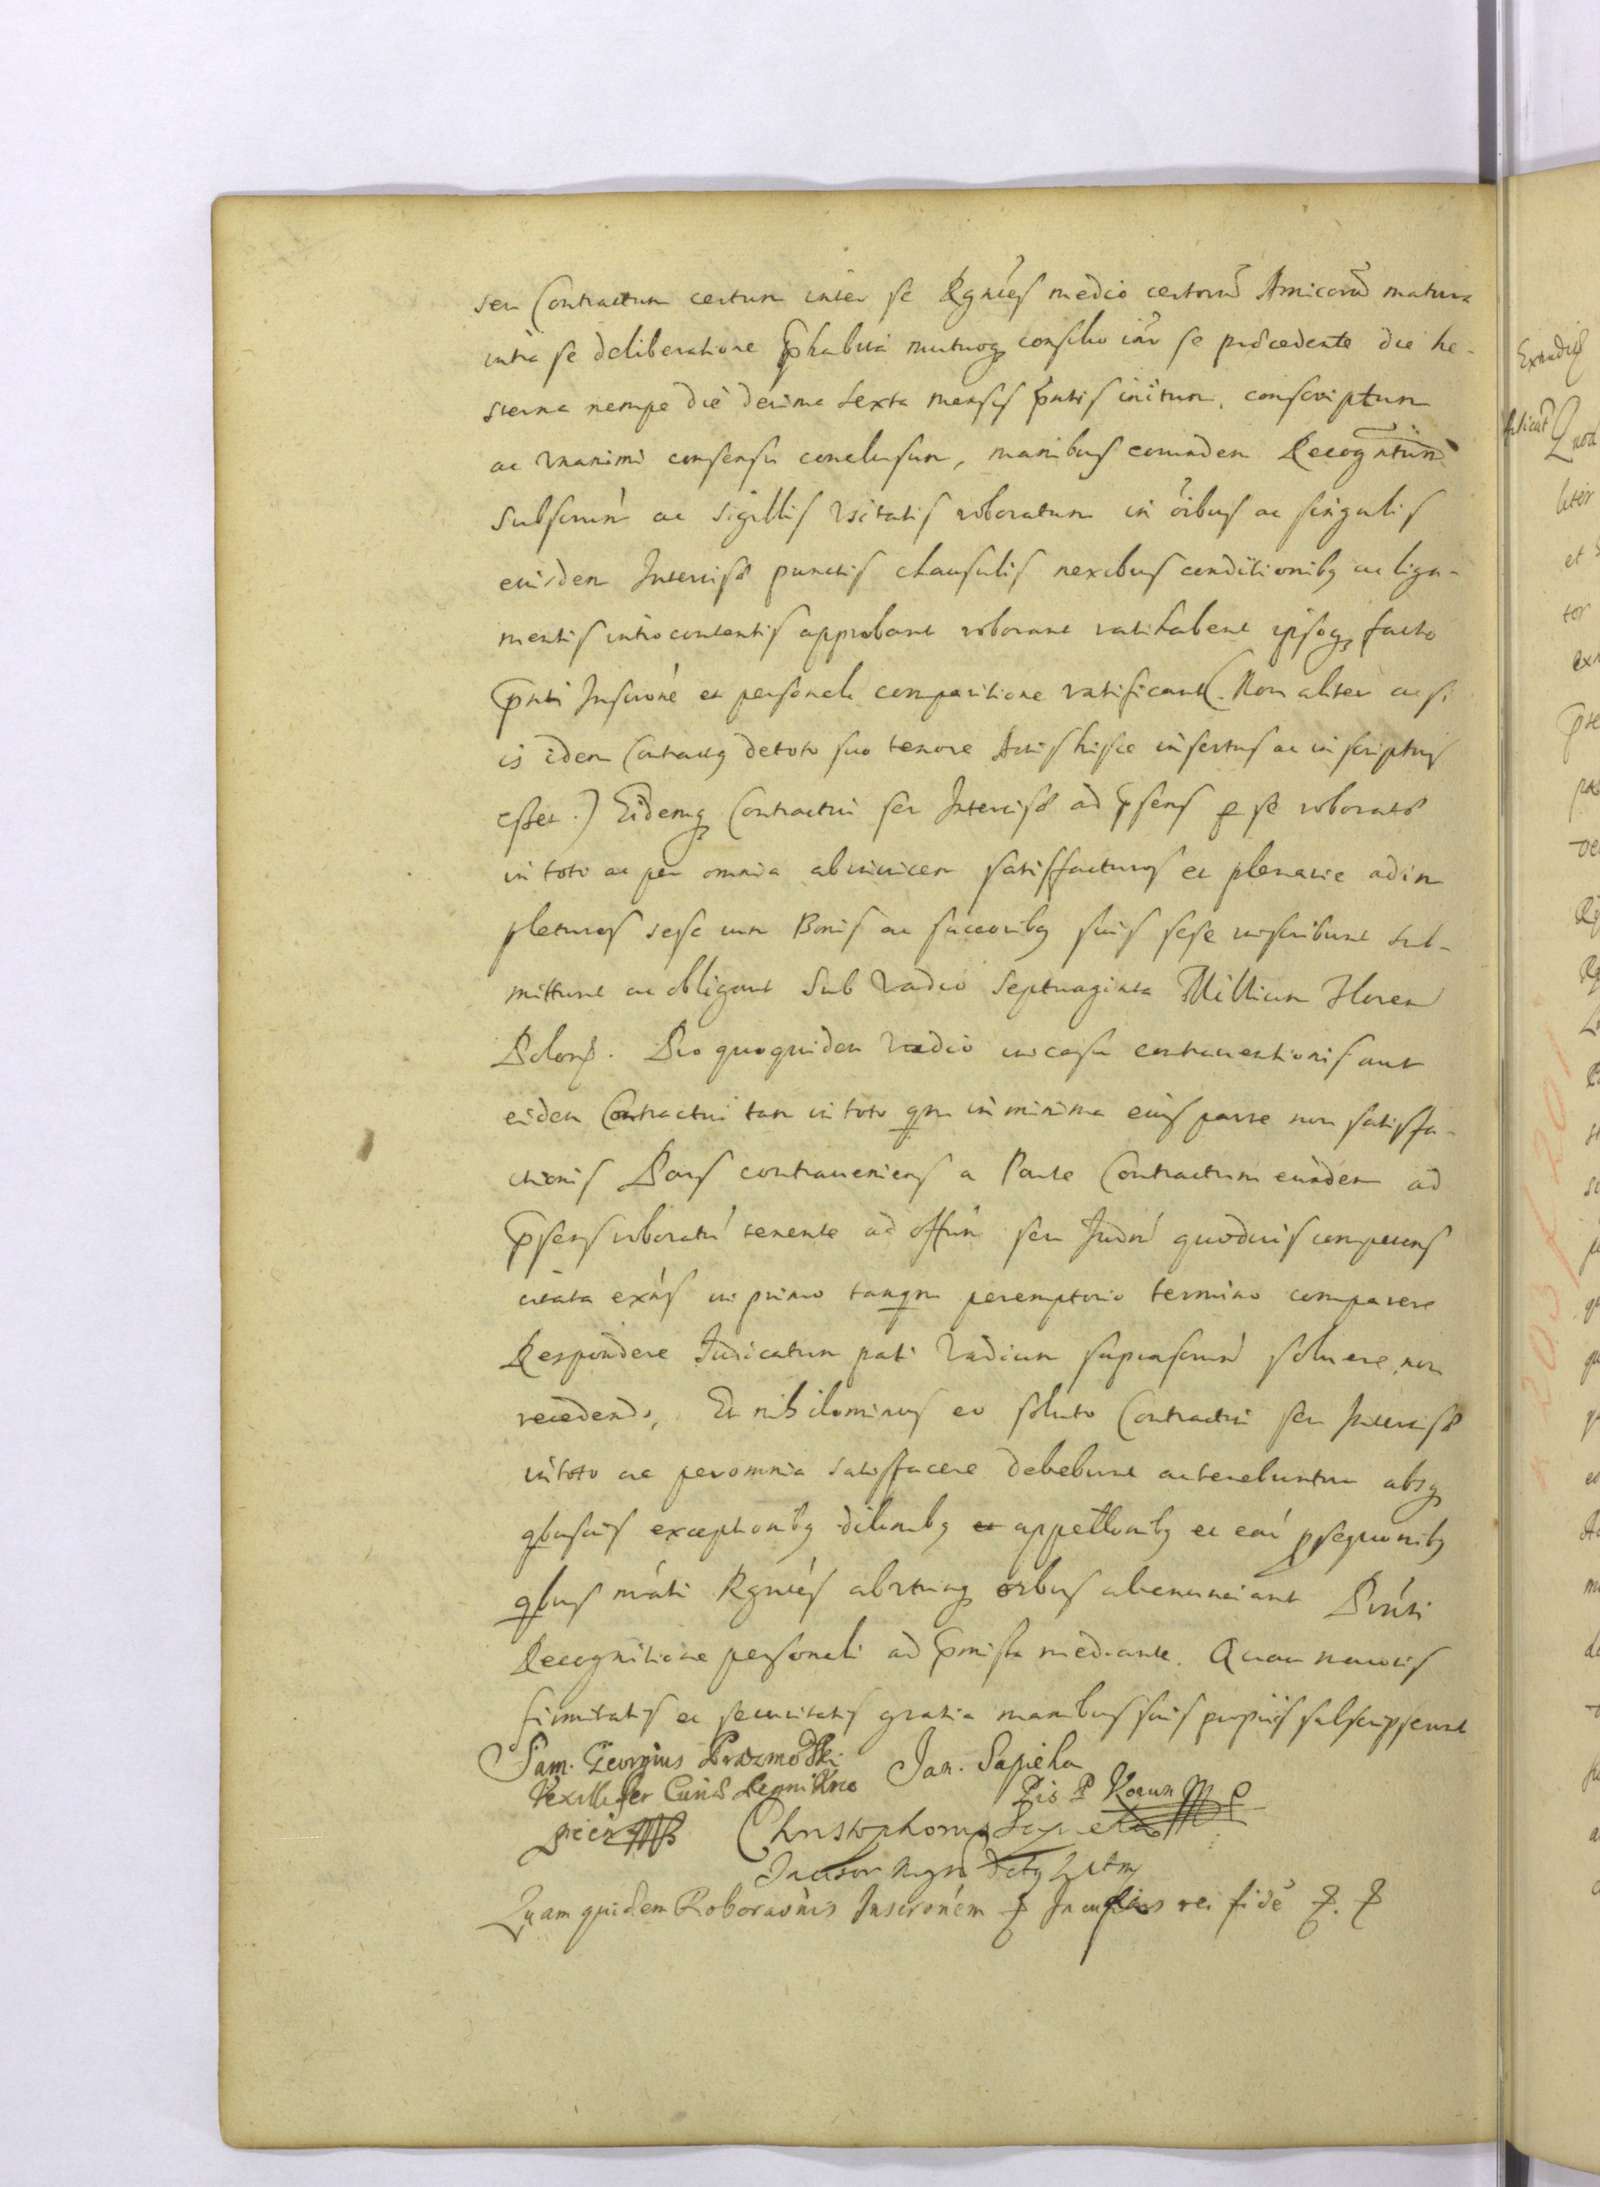 seu Contractum certum inter se Rgntes medio certorũ Amicorũ matura
intra se deliberatione p̃habita mutuoq consilio intr se praecedente die he-
sterna nempe die decima sexta mensis p̃ntis initum, conscriptum
ac vnanimi consensu conclusum, manibus eorundem Recogntium
Subscrin ac sigillis vsitatis roboratum in oĩbus ac singulis
eiusdem Intercisae punctis clausulis nexibus conditionibq ac liga-
mentis introcontentis approbant roborant ratihabent ipsoq facto
p̃nti Inscrone et personali comparitione ratificant (Non aliter ac si
is idem Contractq de toto suo tenore Actis hisce insertus ac inscriptus
esset.) Eidemq Contractui seu Intercisae ad p̃sens p se roboratae
in toto ac per omnia abinuicem satisfacturos et plenarie adim
pleturos sese cum Bonis ac succoribq suis sese inscribunt sub-
mittunt ac obligant sub vadio septuaginta Millium Floren
Polon. Pro quoquidem vadio in casu contrauentionis aut
eidem Contractui tam in toto qm in minima eius parte non satisfa-
ctionis Pars contraueniens a Parte Contractum eundem ad
p̃sens roboratu tenente ad Offm seu Judm quoduis competens
citata exns in primo tanqm peremptorio termino comparere
Respondere Judicatum pati Vadium suprascrm soluere, non
recedendo, Et nihilominus eo soluto Contractui seu Intercisae
in toto ac per omnia satisfacere debebunt ac tenebuntur absq
qbusuis exceptionibq dilonibq et appellonibq et earu psequonibq
qbus mati Rgntes abvtrinq oibus abrenunciant Pnti
Recognitione personali ad p̃missa mediante. Quam maioris
firmitatis et securitatis gratia manibus suis propriis subscripserunt
Sam. Georgius Prazmowski
Jan. Sapieha
Vexillifer Curiae
Pis P Koron mp
Christophorus Sapieha
Incisor Mgni Dctq Litm
Quam quidem Roboraonis Inscronem p In cuius rei fide p. p